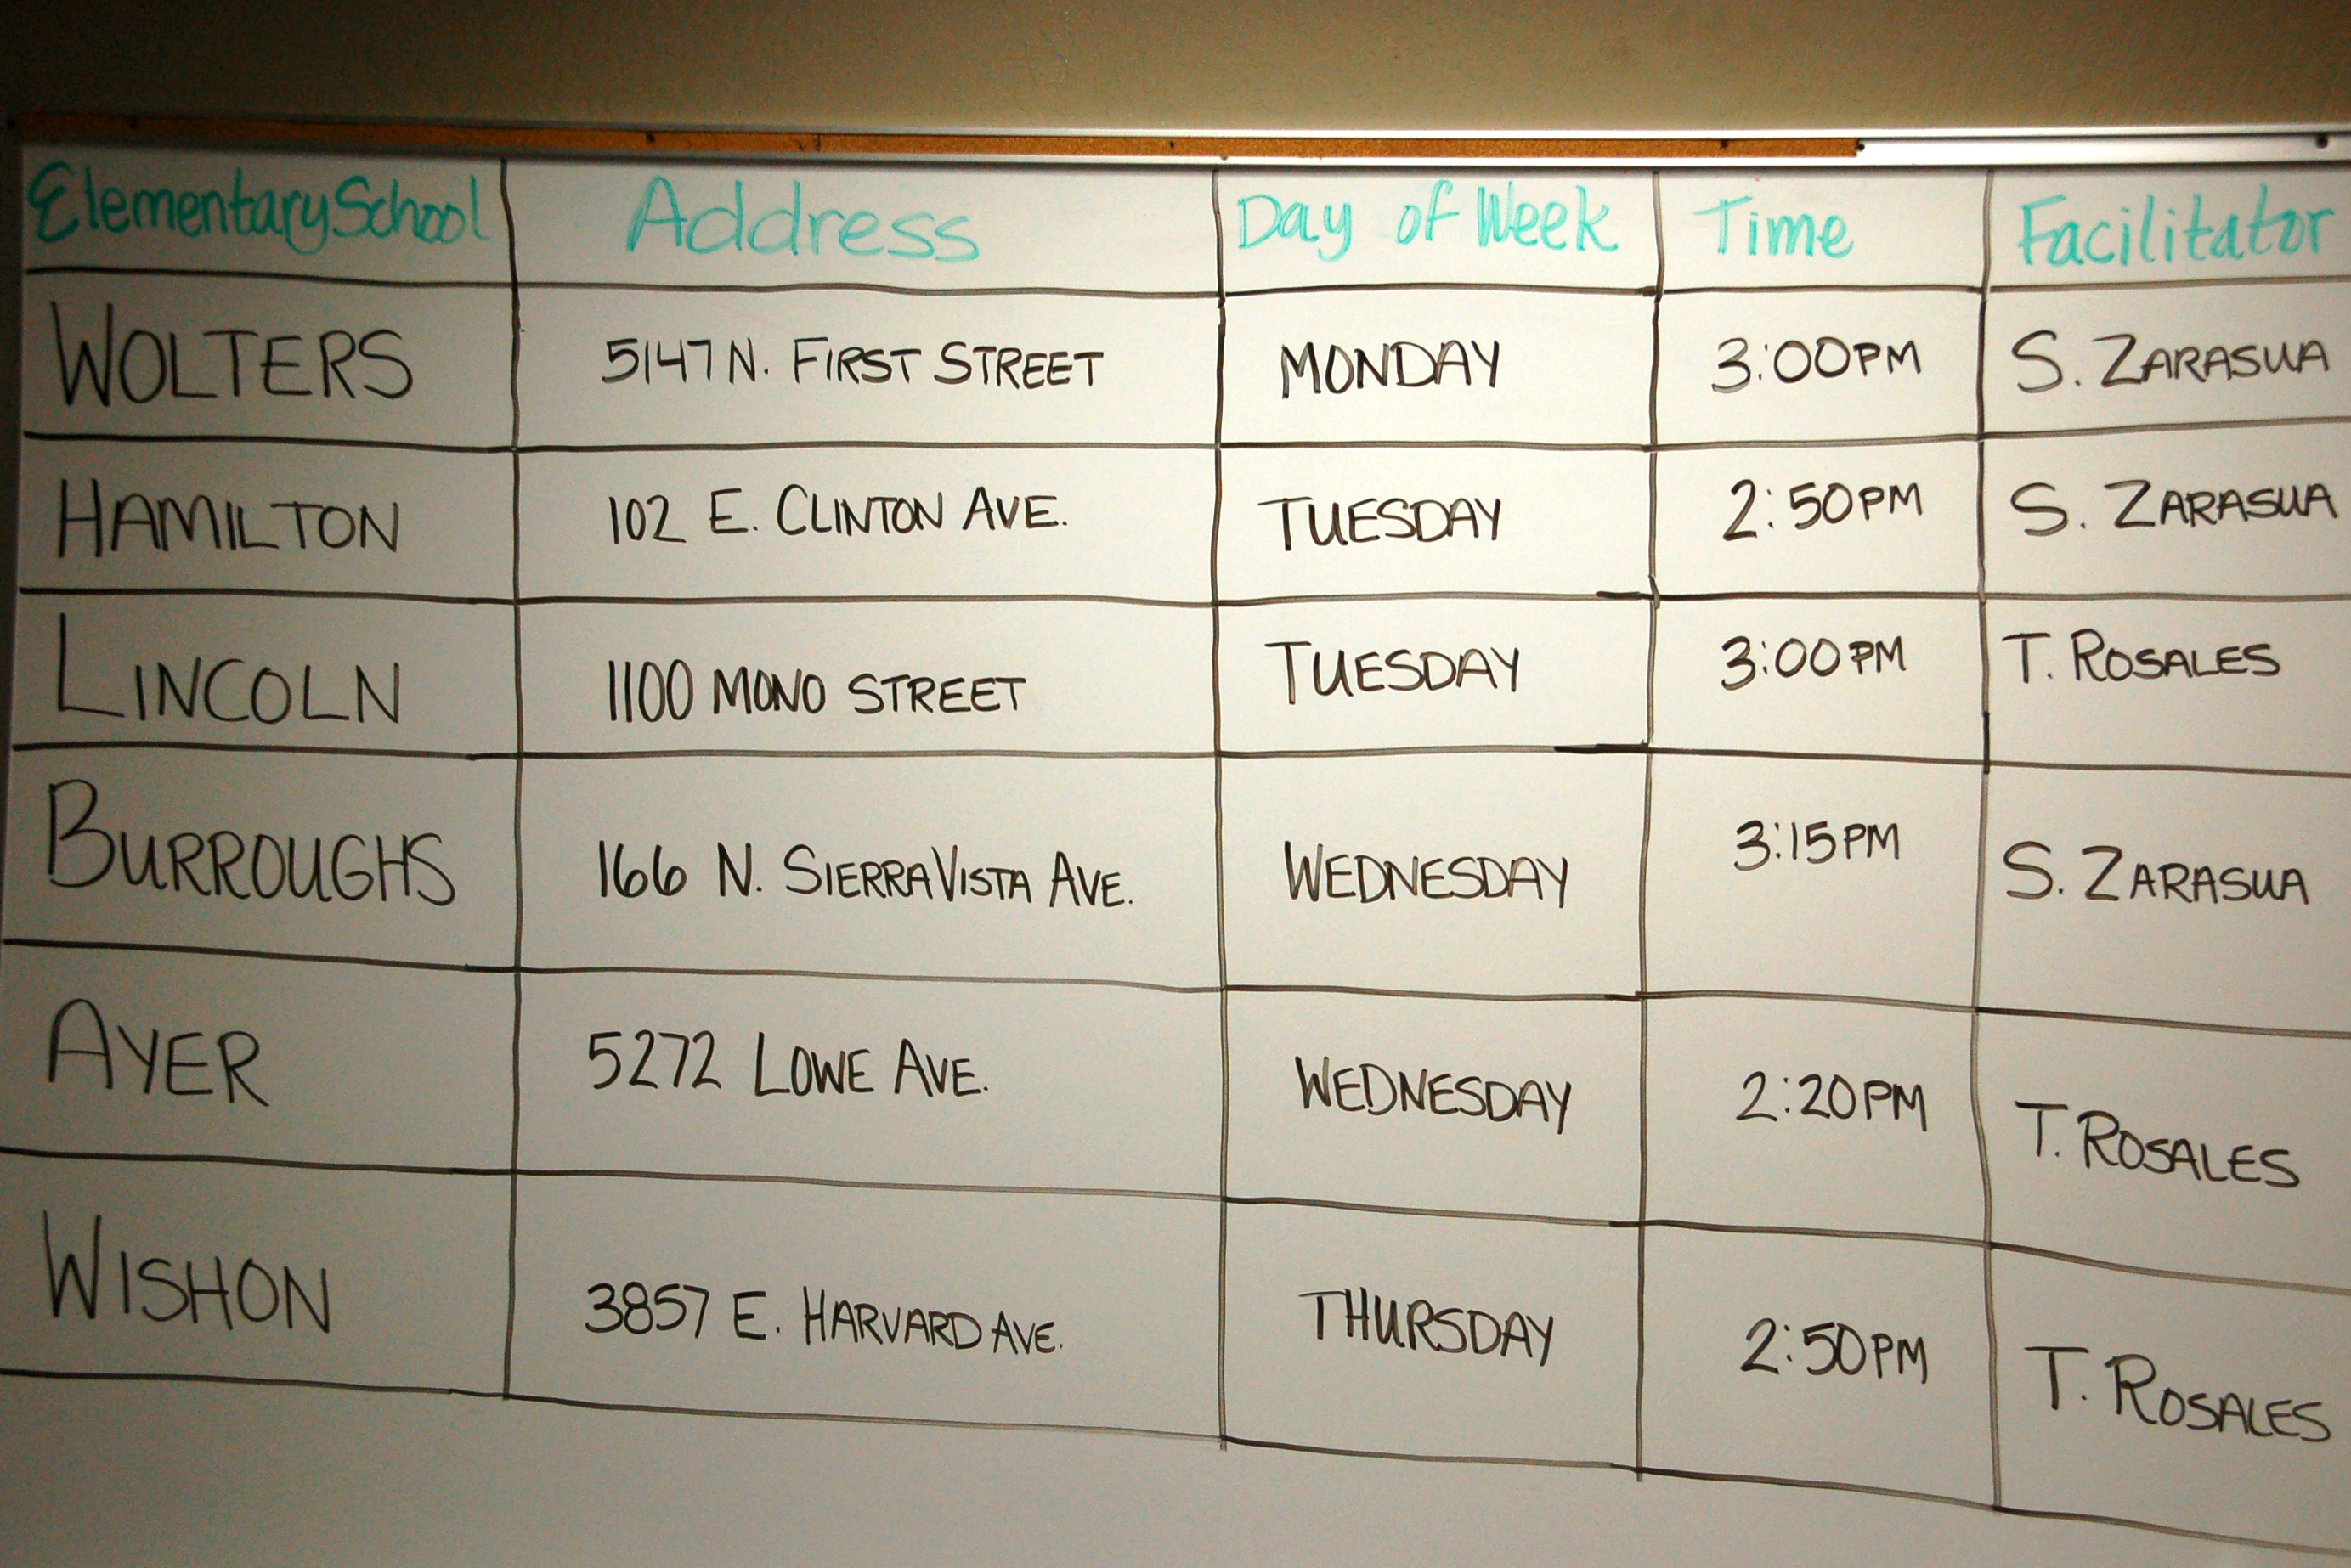 Elementary School Address Day of Week Time Facilitator
WOLTERS 5147 N. FIRST STREET MONDAY 3:00PM S. ZARASUA
HAMILTON 102 E. CLINTON AVE. TUESDAY 2:50PM S. ZARASUA
LINCOLN 1100 MONO STREET TUESDAY 3:00PM T. ROSALES
BURROUGHS 166 N. SIERRA VISTA AVE. WEDNESDAY 3:15PM S. ZARASUA
AYER 5272 LOWE AVE. WEDNESDAY 2:20PM T. ROSALES
WISHON 3857 E. HARVARD AVE. THURSDAY 2:50PM T. ROSALES